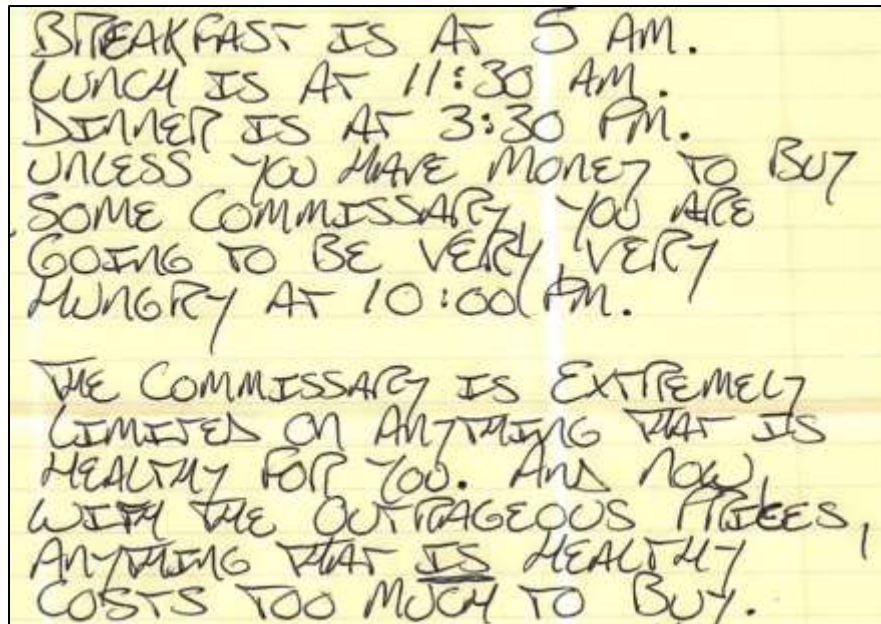 BREAKFAST IS AT 5 AM.
LUNCH IS AT 11:30 AM.
DINNER IS AT 3:30 PM.
UNLESS YOU HAVE MONEY TO BUY
SOME COMMISSARY, YOU ARE
GOING TO BE VERY, VERY
HUNGRY AT 10:00 PM.
THE COMMISSARY IS EXTREMELY
LIMITED ON ANYTHING THAT IS
HEALTHY FOR YOU. AND NOW,
WITH THE OUTRAGEOUS PRICES,
ANYTHING THAT IS HEALTHY
COSTS TOO MUCH TO BUY.